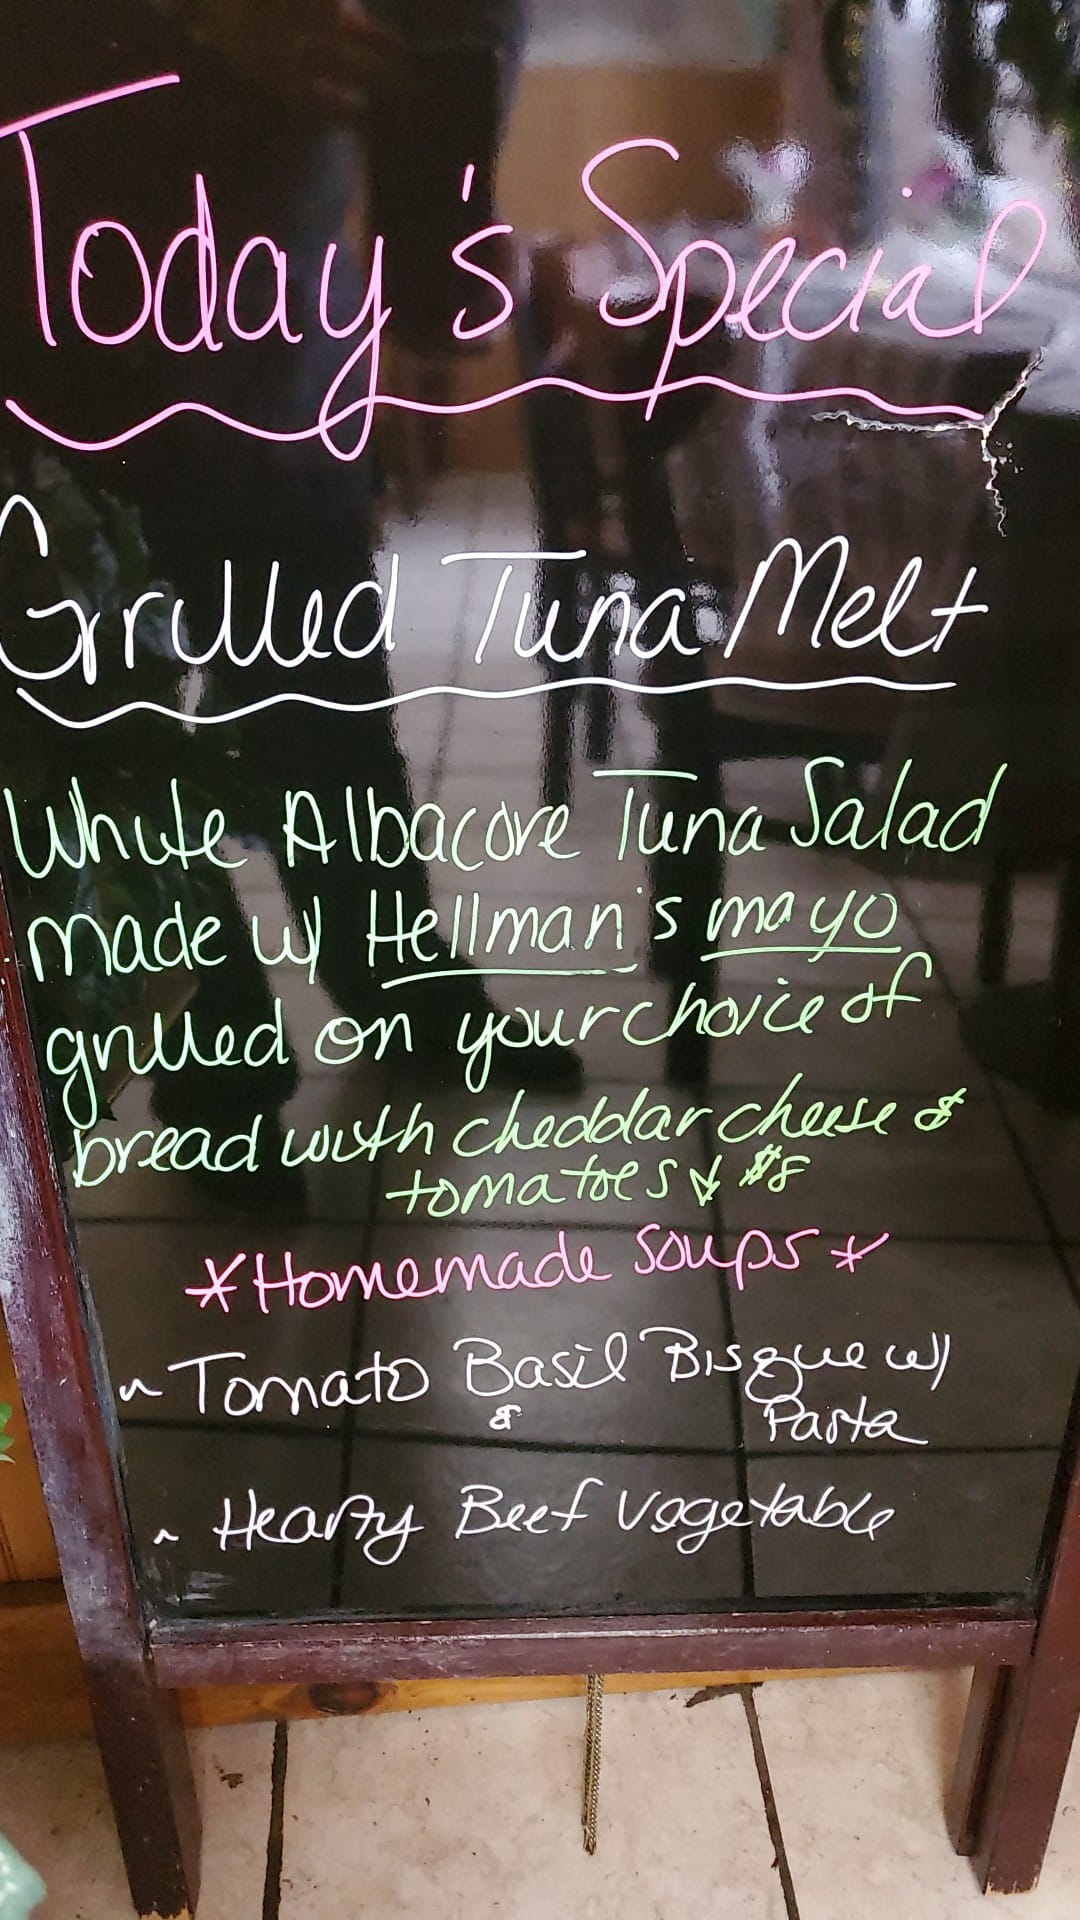 Today's Special
Grilled Tuna Melt
White Albacore Tuna Salad
made w/ Hellman's mayo
grilled on your choice of
bread with cheddar cheese &
tomatoes $8
*Homemade Soups*
~ Tomato Basil Bisque w/
& Pasta
~ Hearty Beef Vegetable